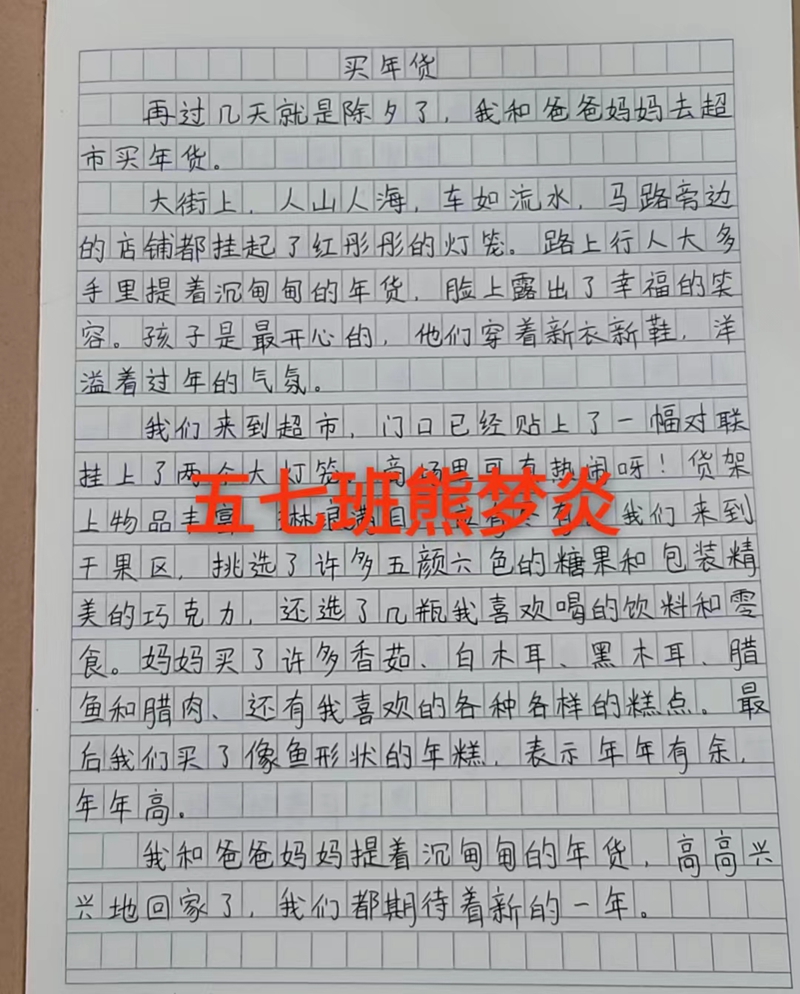 买年货
再过几天就是除夕了，我和爸爸妈妈去超
市买年货。
大街上，人山人海，车如流水，马路旁边
的店铺都挂起了红彤彤的灯笼。路上行人大多
手里提着沉甸甸的年货，脸上露出了幸福的笑
容。孩子是最开心的，他们穿着新衣新鞋，洋
溢着过年的气氛。
我们来到超市，门口已经贴上了一幅对联
挂上了两个大灯笼，商场里可有热闹呀！货架
五七班熊梦炎
上物品丰富 琳琅满目 我们来到
干果区，挑选了许多五颜六色的糖果和包装精
美的巧克力，还选了几瓶我喜欢喝的饮料和零
食。妈妈买了许多香茹、白木耳、黑木耳、腊
鱼和腊肉、还有我喜欢的各种各样的糕点。最
后我们买了像鱼形状的年糕，表示年年有余，
年年高。
我和爸爸妈妈提着沉甸甸的年货，高高兴
兴地回家了，我们都期待着新的一年。